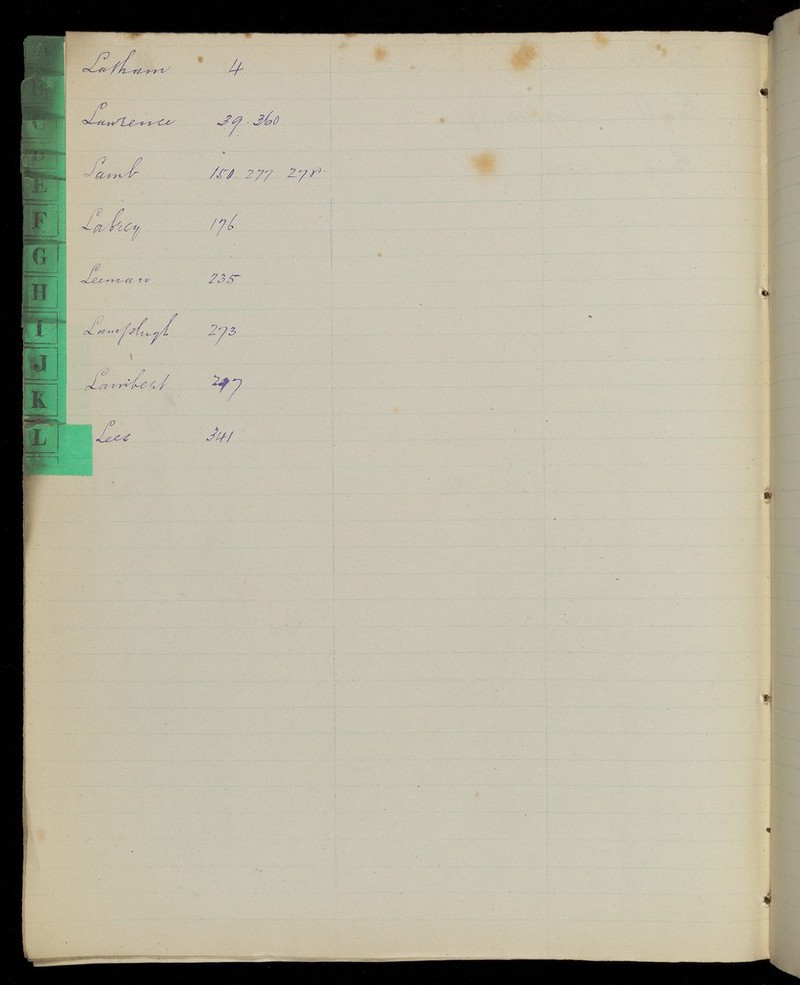 A
E
F
G
H
I
J
K
L
Latham 4
Lawrence 39. 360
Lamb 150 277 278
Labrey 176
Leeman 235
Lamplugh 273
Lambert 297
Lees 341